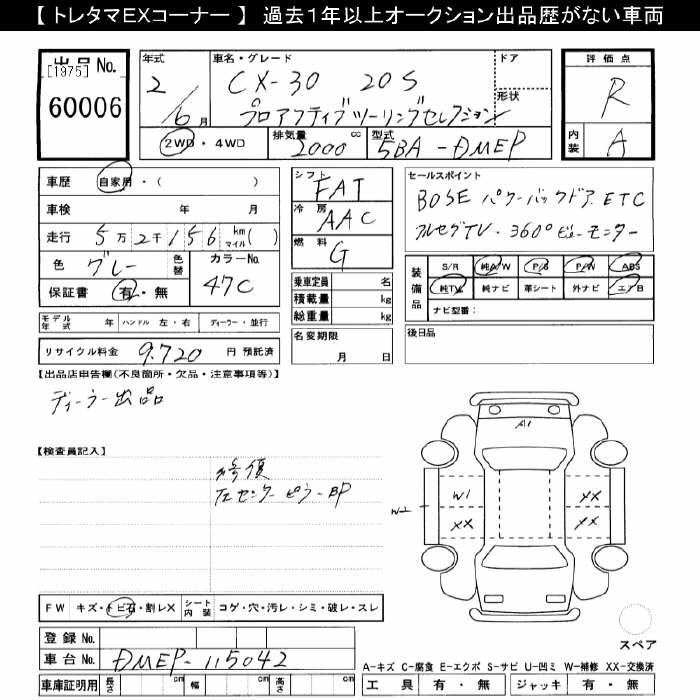 【 トレタマEXコーナー 】 過去1年以上オークション出品歴がない車両
出品 No. [1975] 60006
年式 2 / 6 月
車名・グレード CX-30 20S プロアクティブツーリングセレクション
ドア
形状
2WD・4WD 排気量 2000 cc 型式 5BA-DMEP
評価点 R
内装 A
車歴 自家用・( )
車検 年 月
走行 5万2千156 km マイル( )
色 グレー 色替 カラーNo. 47C
保証書 有・無
モデル年式 年 ハンドル 左・右 ディーラー・並行
リサイクル料金 9,720 円 預託済
シフト FAT
冷房 AAC
燃料 G
乗車定員 名
積載量 kg
総重量 kg
名変期限 月 日
セールスポイント
BOSE パワーバックドア ETC
フルセグTV・360°ビューモニター
装備品 S/R 純A/W P/S P/W ABS
純TV 純ナビ 革シート 外ナビ エアB
ナビ型番:
後日品
【出品店申告欄(不良箇所・欠品・注意事項等)】
ディーラー出品
【検査員記入】
修復
左センターピラーBP
A1
W2 W1 XX
XX XX
FW キズ・トビ石・割レX シート内装 コゲ・穴・汚レ・シミ・破レ・スレ
スペア
登録 No.
車台 No. DMEP-115042
車庫証明用 長さ cm 幅 cm 高さ cm
A-キズ C-腐食 E-エクボ S-サビ U-凹ミ W-補修 XX-交換済
工具 有・無 ジャッキ 有・無